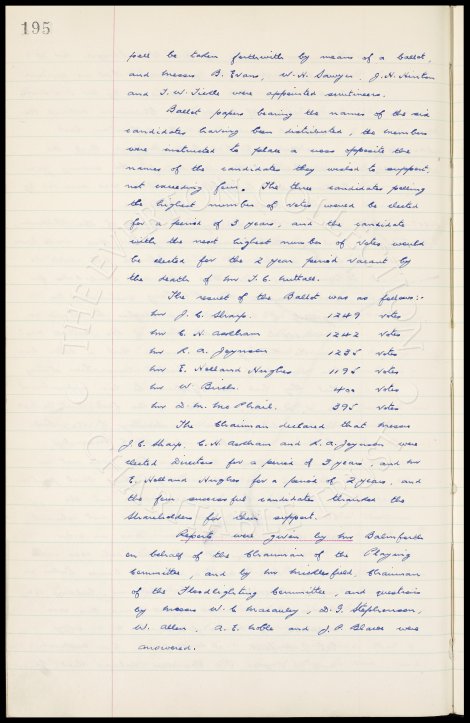 195
poll be taken forthwith by means of a ballot,
and Messrs B. Evans, W. H. Sawyer, J. H. Newton
and T. W. were appointed scrutineers.
Ballot papers bearing the names of the six
candidates having been distributed, the members
were instructed to place a cross opposite the
names of the candidates they wished to support,
not exceeding four. The three candidates polling
the highest number of votes would be elected
for a period of 3 years, and the candidate
with the next highest number of votes would
be elected for the 2 year period vacant by
the death of Mr T. C. Nuttall.
The result of the Ballot was as follows:-
Mr J. C. Sharp. 1249 votes
Mr C. H. Askham 1242 votes
Mr R. A. Joynson 1235 votes
Mr E. Holland Hughes 1195 votes
Mr W. Birch. 400 votes
Mr D. M. McPhail. 395 votes
The Chairman declared that Messrs
J. C. Sharp, C. H. Askham and R. A. Joynson were
elected Directors for a period of 3 years, and Mr
E. Holland Hughes for a period of 2 years, and
the four successful candidates thanked the
Shareholders for their support.
Reports were given by Mr Balmforth
on behalf of the Chairman of the Playing
Committee, and by Mr Micklesfield, Chairman
of the Floodlighting Committee, and questions
by Messrs W. C. Macauley, D. G. Stephenson,
W. Allen, A. E. Noble and J. P. were
answered.
THE EVERTON COLLECTION